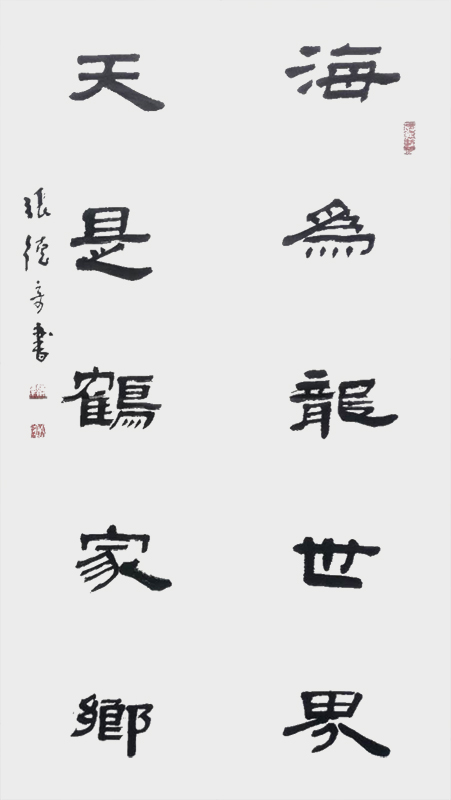 海為龍世界
天是鶴家鄉
張德奇書